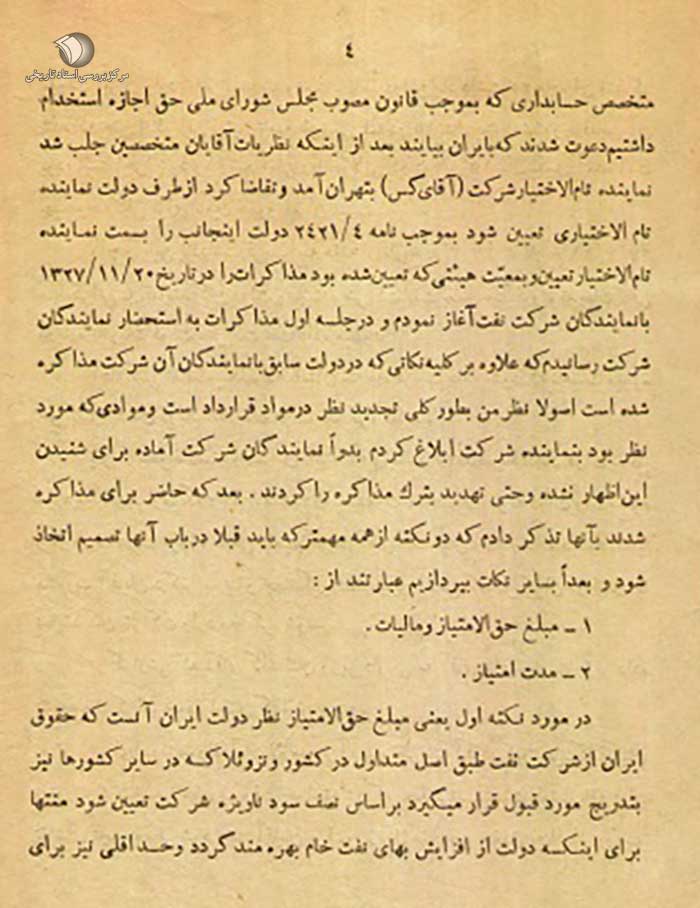 ۴
مرکز بررسی اسناد تاریخی
متخصص حسابداری که بموجب قانون مصوب مجلس شورای ملی حق اجازه استخدام
داشتیم دعوت شدند که بایران بیایند بعد از اینکه نظریات آقایان متخصصین جلب شد
نماینده تام‌الاختیار شرکت (آقای گس) بتهران آمد و تقاضا کرد از طرف دولت نماینده
تام الاختیاری تعیین شود بموجب نامه ۲۴۲۱/۴ دولت اینجانب را بسمت نماینده
تام‌الاختیار تعیین و بمعیّت هیئتی که تعیین شده بود مذاکرات را در تاریخ ۱۳۲۷/۱۱/۲۰
با نمایندگان شرکت نفت آغاز نمودم و در جلسه اول مذاکرات به استحضار نمایندگان
شرکت رسانیدم که علاوه بر کلیه نکاتی که در دولت سابق با نمایندگان آن شرکت مذاکره
شده است اصولا نظر من بطور کلی تجدید نظر در مواد قرارداد است و موادی که مورد
نظر بود بنماینده شرکت ابلاغ کردم بدواً نمایندگان شرکت آماده برای شنیدن
این اظهار نشده و حتی تهدید بترك مذاکره را کردند . بعد که حاضر برای مذاکره
شدند بآنها تذکر دادم که دو نکته از همه مهمتر که باید قبلا در باب آنها تصمیم اتخاذ
شود و بعداً بسایر نکات بپردازیم عبارتند از :
۱ ـ مبلغ حق‌الامتیاز و مالیات .
۲ ـ مدت امتیاز .
در مورد نکته اول یعنی مبلغ حق‌الامتیاز نظر دولت ایران آنست که حقوق
ایران از شرکت نفت طبق اصل متداول در کشور ونزوئلا کـه در سایر کشورها نیز
بتدریج مورد قبول قرار میگیرد براساس نصف سود ناویژه شرکت تعیین شود منتها
برای اینکـه دولت از افزایش بهای نفت خام بهره مند گردد وحـد اقلی نیز برای